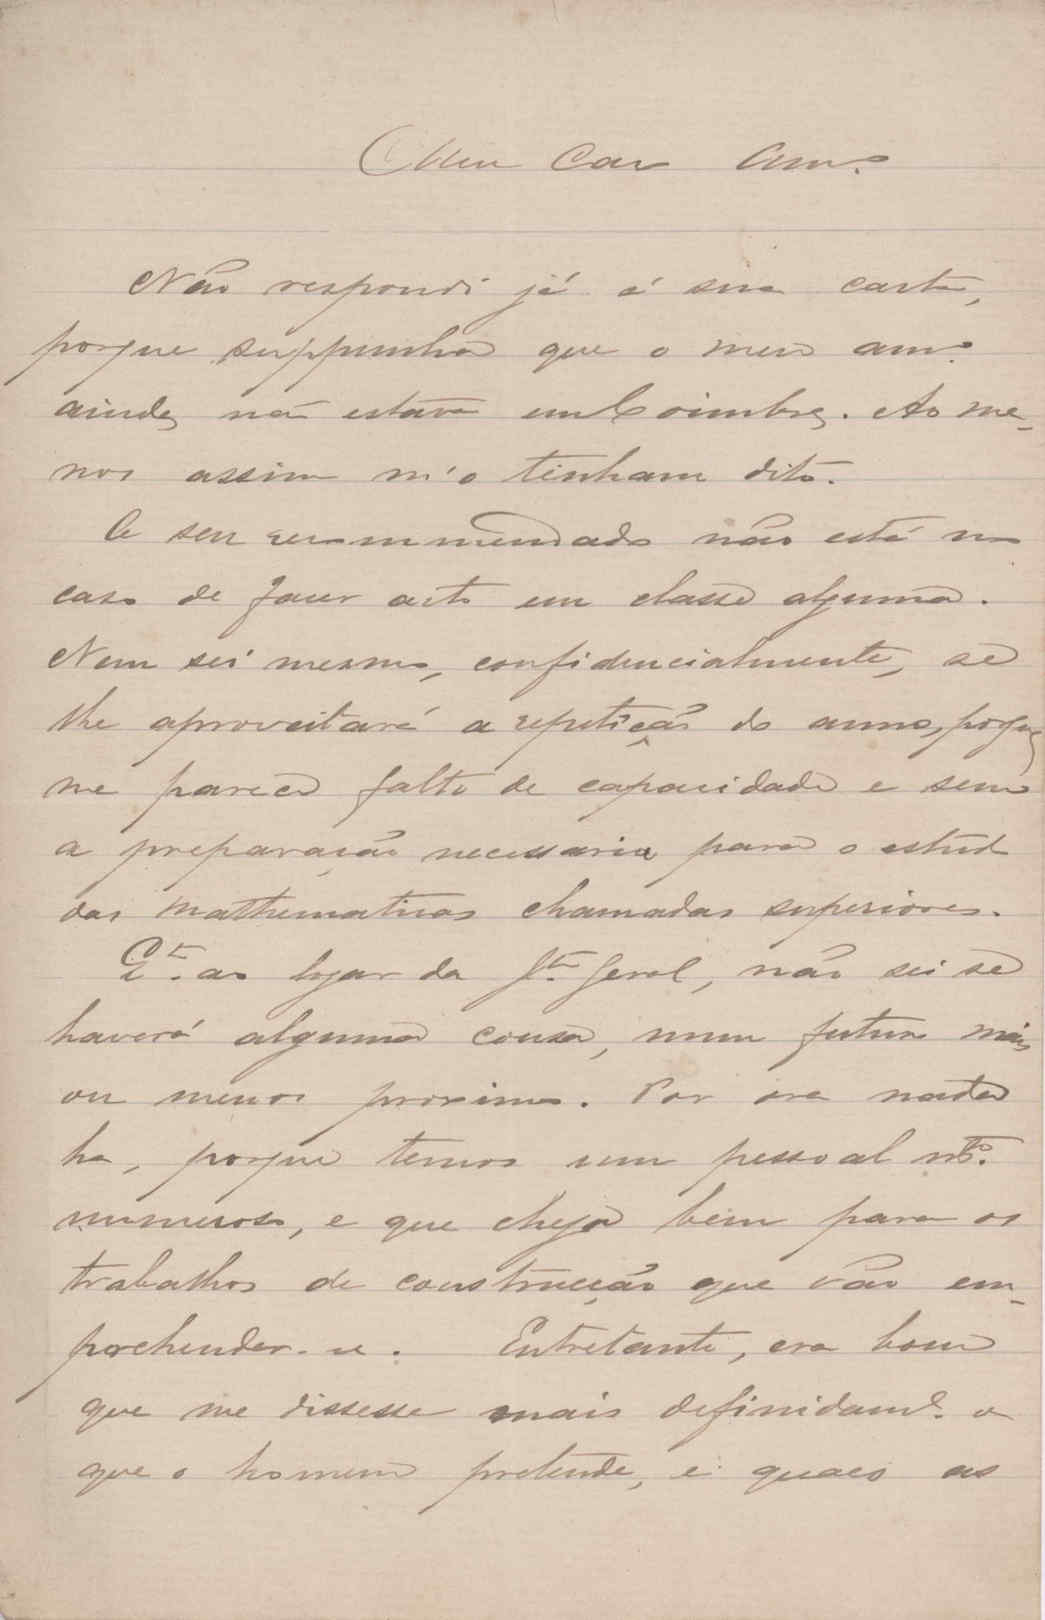 Meu Caro Amº.
Não respondi já á sua carta,
porque suppunha que o meu amº.
ainda não estava em Coimbra. Ao me-
nos assim m'o tinham dito.
O seu recommendado não está no
caso de fazer acto em classe alguma.
Nem sei mesmo, confidencialmente, se
lhe aproveitará a repetição do anno, porque
me parece falto de capacidade e sem
a preparação necessaria para o estudo
das mathematicas chamadas superiores.
Qto. ao logar da Jta. Geral, não sei se
haverá alguma cousa, num futuro mais
ou menos proximo. Por ora nada
ha, porque temos um pessoal mto.
numeroso, e que chega bem para os
trabalhos de construcção que vão em-
prehender-se. Entretanto, era bom
que me dissesse mais definidamte. o
que o homem pretende, e quaes as